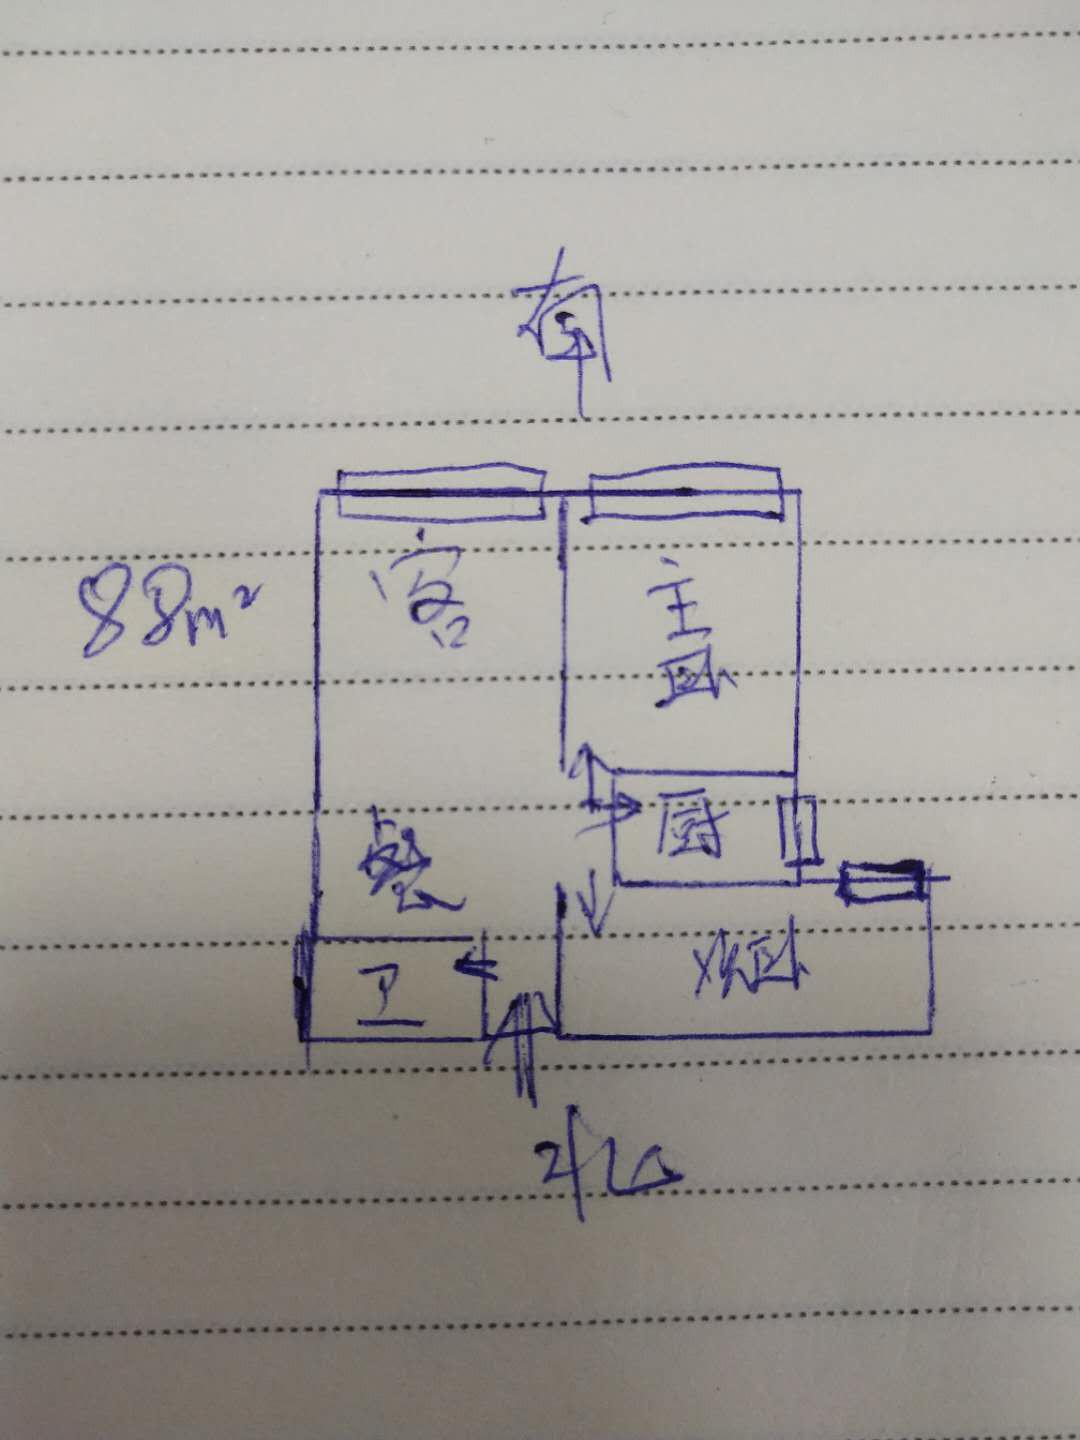 南
88m²
客
主
卧
厨
餐
卫
次卧
北